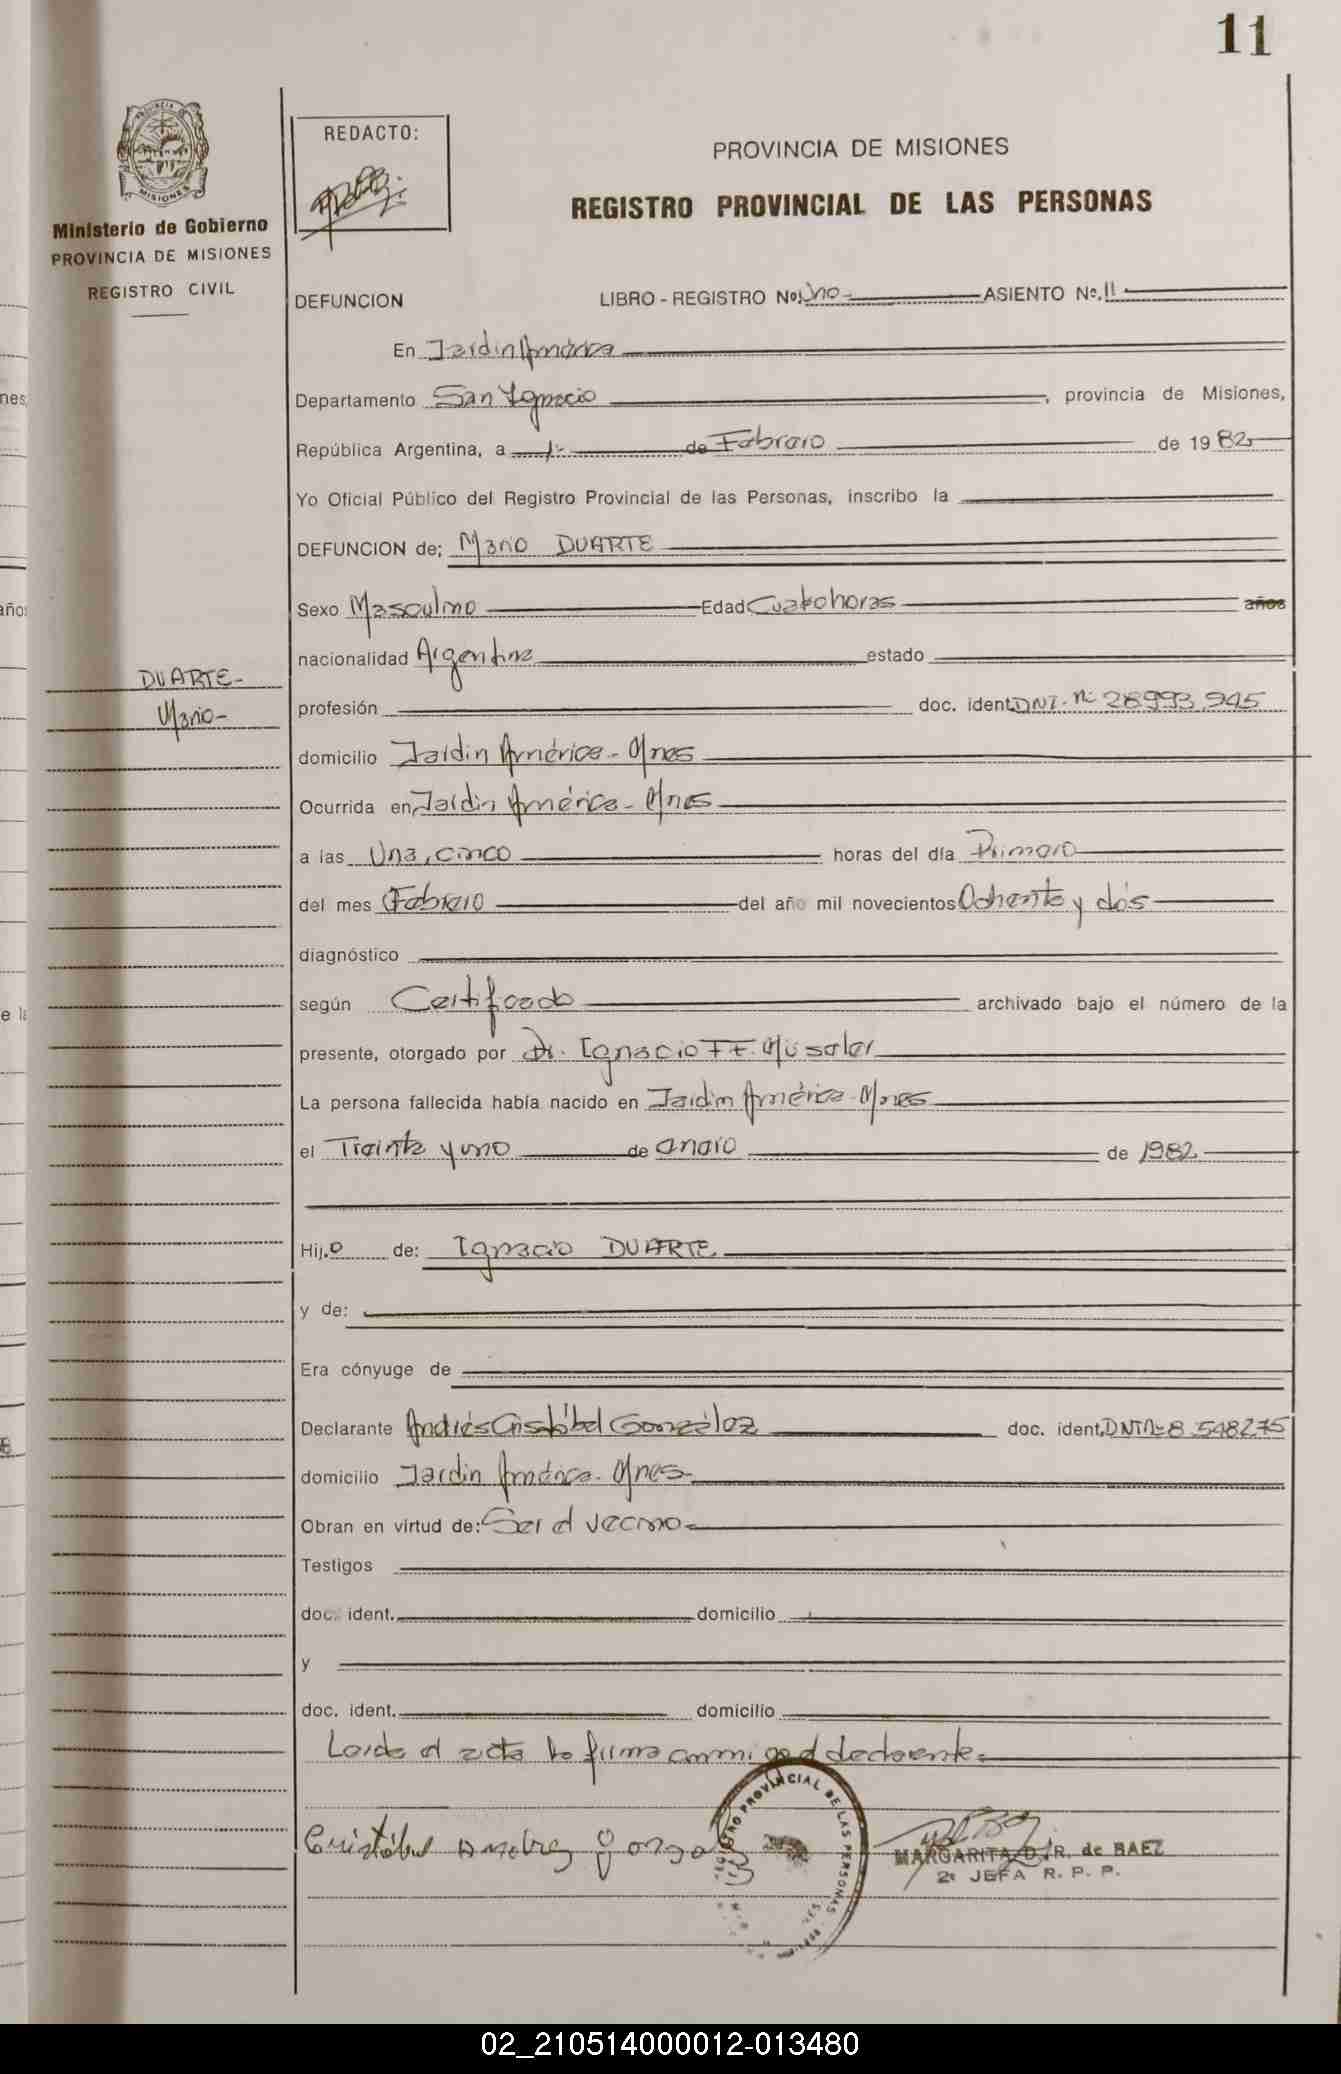 11
PROVINCIA DE
MISIONES
Ministerio de Gobierno
PROVINCIA DE MISIONES
REGISTRO CIVIL
DUARTE-
Mario-
REDACTO:
PROVINCIA DE MISIONES
REGISTRO PROVINCIAL DE LAS PERSONAS
DEFUNCION LIBRO - REGISTRO No. Uno- ASIENTO No. 11-
En Jardin América
Departamento San Ignacio, provincia de Misiones,
República Argentina, a 1º de Febrero de 1982
Yo Oficial Público del Registro Provincial de las Personas, inscribo la
DEFUNCION de; Mario DUARTE
Sexo Masculino Edad Cuatro horas años
nacionalidad Argentina estado
profesión doc. ident. DNI. Nº 28.993.945
domicilio Jardin América - Mnes
Ocurrida en, Jardin América - Mnes
a las Una, cinco horas del día Primero
del mes Febrero del año mil novecientos Ochenta y dós
diagnóstico
según Certificado archivado bajo el número de la
presente, otorgado por Dr. Ignacio
La persona fallecida había nacido en Jardin América - Mnes
el Treinta y uno de enero de 1982
Hij.o de: Ignacio DUARTE
y de:
Era cónyuge de
Declarante Andrés Cristóbal González doc. ident. DNI Nº 8.548.275
domicilio Jardin América - Mnes-
Obran en virtud de: Ser el vecino-
Testigos
doc. ident. domicilio
y
doc. ident. domicilio
Leida el acta la firma conmigo el declarante-
Cristóbal Andres gonzalez
REGISTRO PROVINCIAL DE LAS PERSONAS
MARGARITA D. R. de BAEZ
2º JEFA R. P. P.
02_210514000012-013480